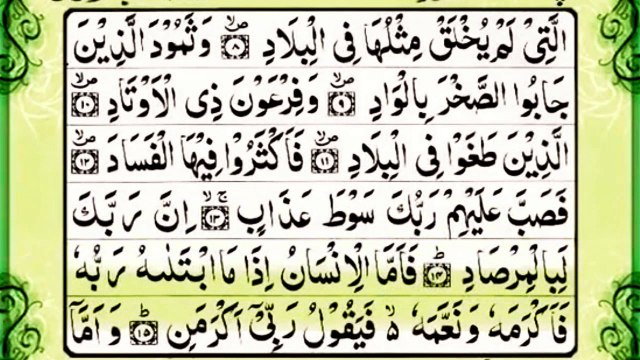 الَّتِیْ لَمْ یُخْلَقْ مِثْلُهَا فِی الْبِلَادِ ۪ۙ‏﴿۸﴾ وَ ثَمُوْدَ الَّذِیْنَ
جَابُوا الصَّخْرَ بِالْوَادِ ۪ۙ‏﴿۹﴾ وَ فِرْعَوْنَ ذِی الْاَوْتَادِ ۪ۙ‏﴿۱۰﴾
الَّذِیْنَ طَغَوْا فِی الْبِلَادِ ۪ۙ‏﴿۱۱﴾ فَاَكْثَرُوْا فِیْهَا الْفَسَادَ ۪ۙ‏﴿۱۲﴾
فَصَبَّ عَلَیْهِمْ رَبُّكَ سَوْطَ عَذَابٍ ۚۙ‏﴿۱۳﴾ اِنَّ رَبَّكَ
لَبِالْمِرْصَادِ ؕ‏﴿۱۴﴾ فَاَمَّا الْاِنْسَانُ اِذَا مَا ابْتَلٰىهُ رَبُّهٗ
فَاَكْرَمَهٗ وَ نَعَّمَهٗ ۙ۬ فَیَقُوْلُ رَبِّیْۤ اَكْرَمَنِ ؕ‏﴿۱۵﴾ وَ اَمَّاۤ